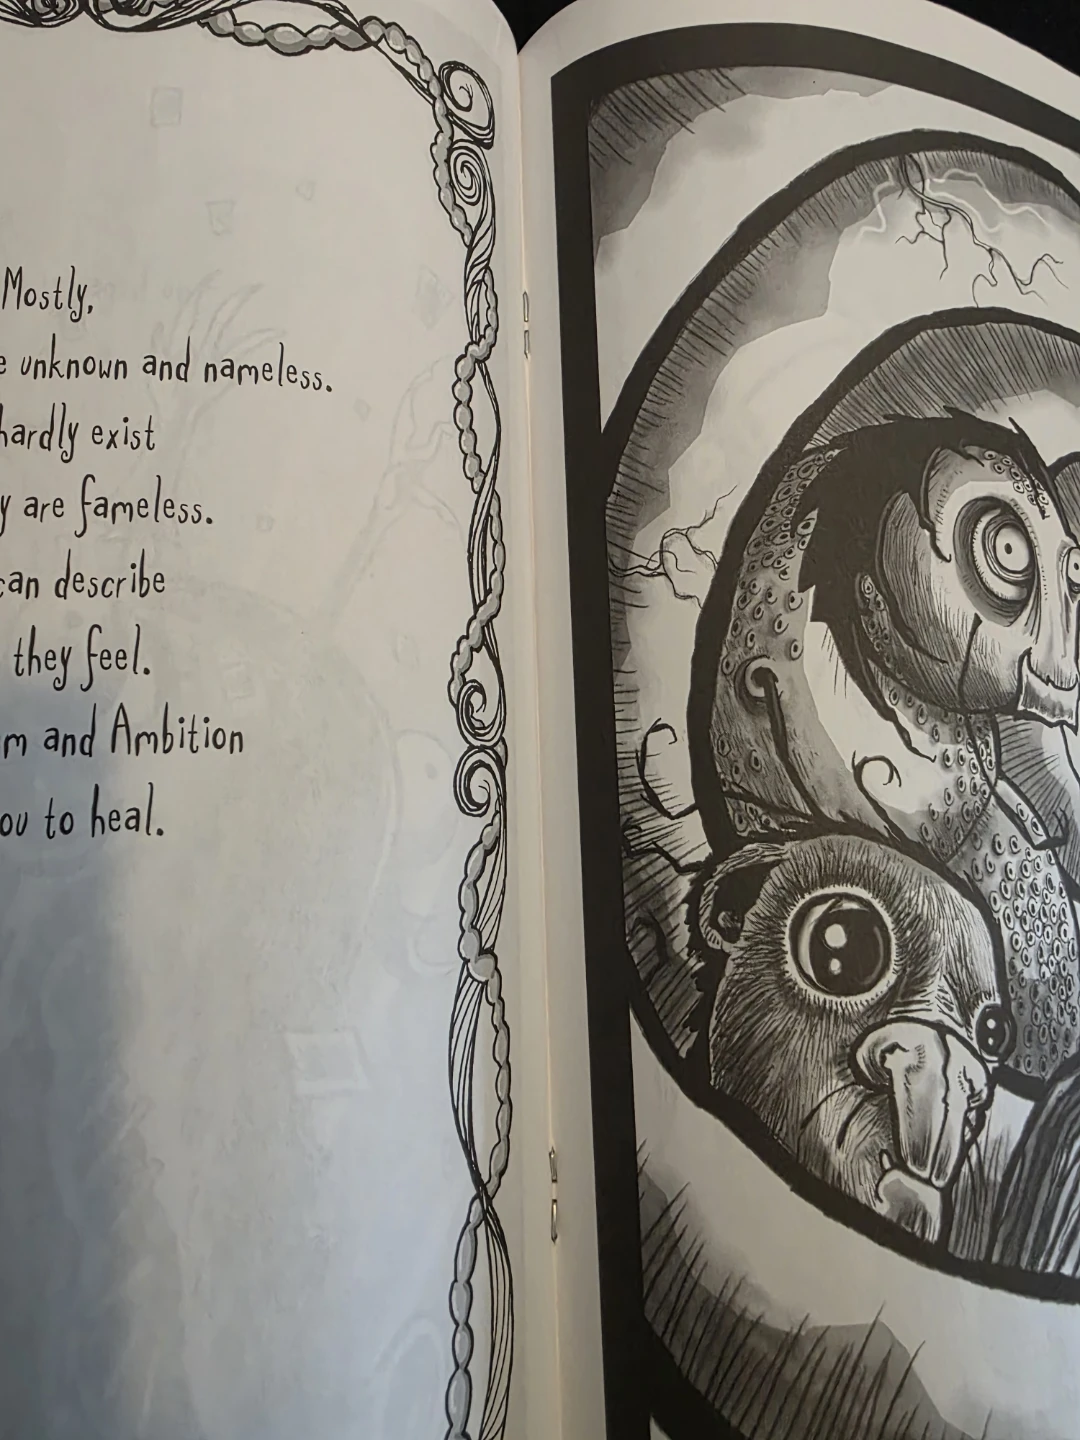 Mostly,
unknown and nameless.
hardly exist
are fameless.
can describe
they feel.
and Ambition
to heal.